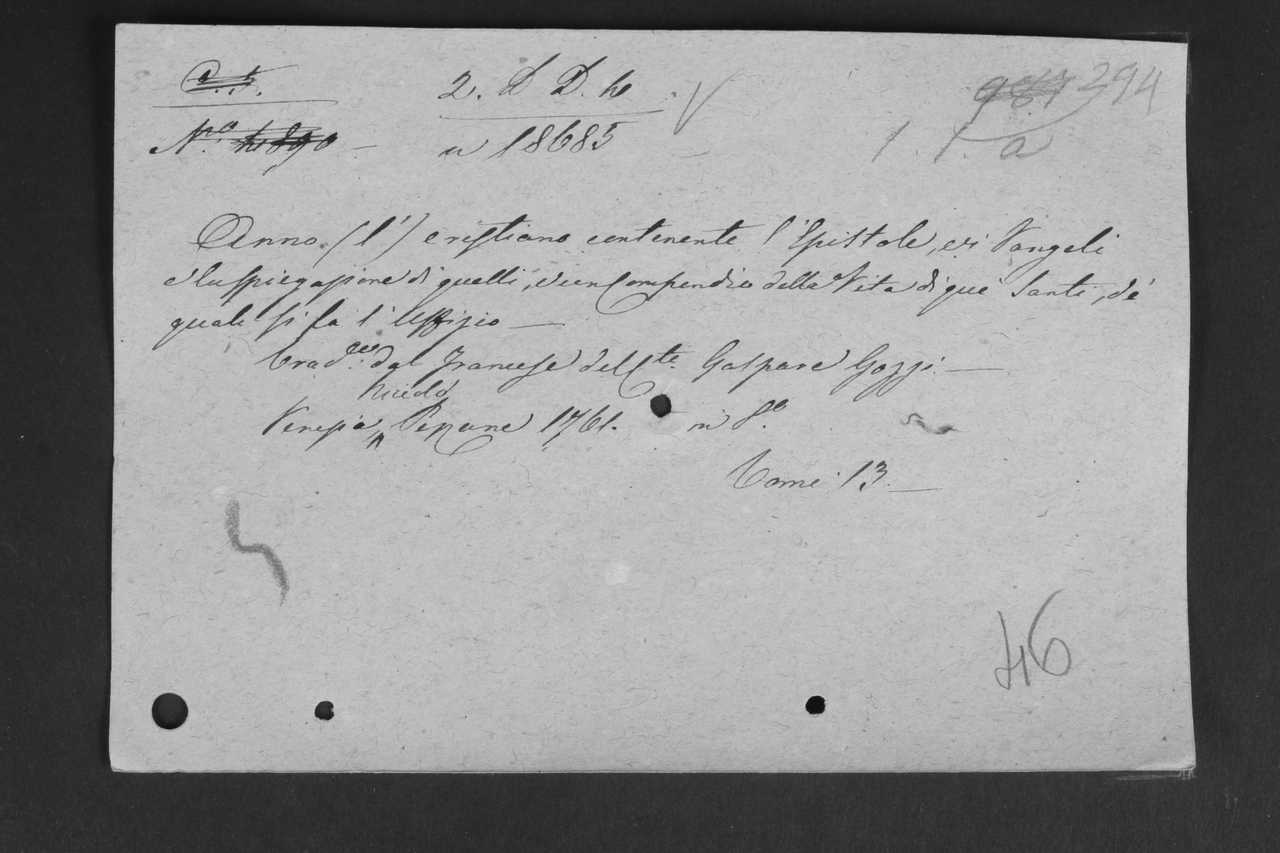 2. D D. 4 V 394
N.ro
n 18685 1. 1. a
Anno (l') cristiano contenente l'Epistole, ei Vangeli
e la spiegazione di quelli, e un Compendio della Vita di que' Santi, de'
quali si fa l'Uffizio —
Trad.ne dal Francese del C.te Gaspare Gozzi. —
Venezia 1761. in 8.o
Tomi 13 —
46